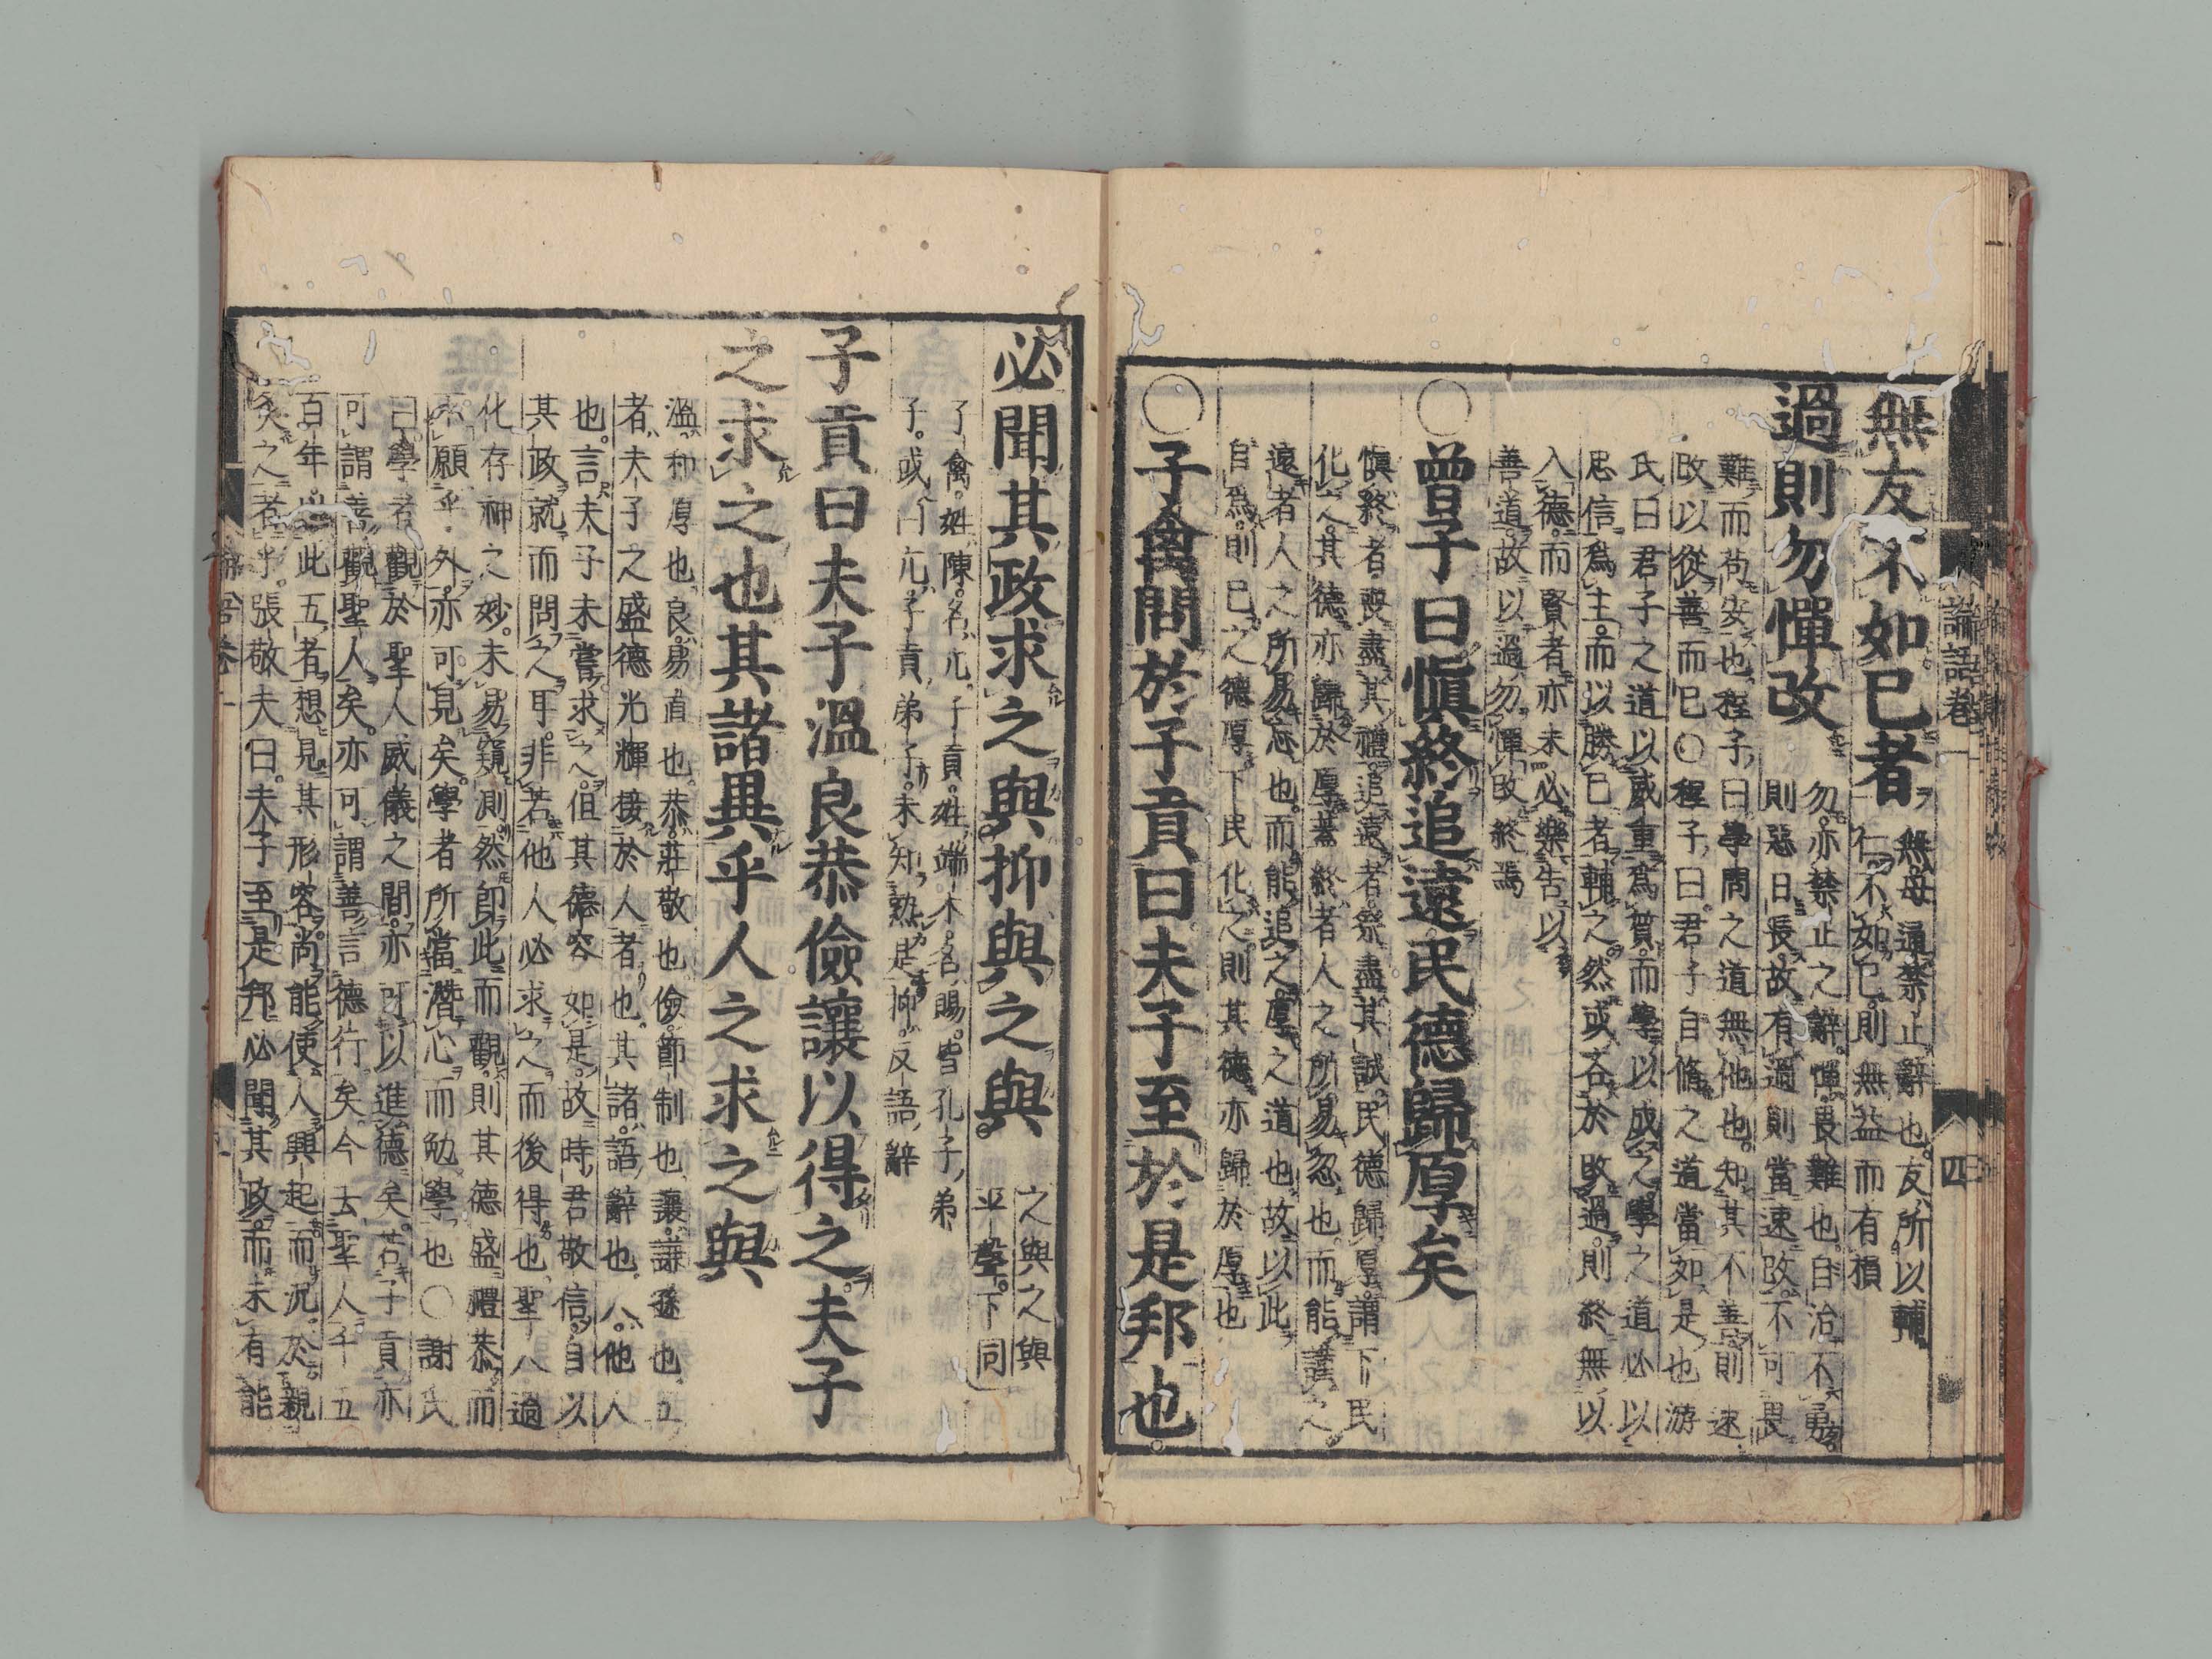 無友不如已者
無毋通禁止辭也友所以輔
仁不如已則無益而有損
過則勿憚改
勿亦禁止之辭憚畏難也自治不勇
則惡日長故有過則當速改不可畏
難而苟安也程子曰學問之道無他也知其不善則速
改以從善而已○程子曰君子自脩之道當如是也游
氏曰君子之道以威重爲質而學以成之學之道必以
忠信爲主而以勝已者輔之然或吝於改過則終無以
入德而賢者亦未必樂告以
善道故以過勿憚改終焉
○曾子曰愼終追遠民德歸厚矣
愼終者喪盡其禮追遠者祭盡其誠民德歸厚謂下民
化之其德亦歸於厚蓋終者人之所易忽也而能謹之
遠者人之所易忘也而能追之厚之道也故以此
自爲則已之德厚下民化之則其德亦歸於厚也
○子禽問於子貢曰夫子至於是邦也
論語卷一
四
必聞其政求之與抑與之與
之與之與
平聲下同
子禽姓陳名亢子貢姓端木名賜皆孔子弟
子或曰亢子貢弟子未知孰是抑反語辭
子貢曰夫子溫良恭儉讓以得之夫子
之求之也其諸異乎人之求之與
溫和厚也良易直也恭莊敬也儉節制也讓謙孫也五
者夫子之盛德光輝接於人者也其諸語辭也人他人
也言夫子未嘗求之但其德容如是故時君敬信自以
其政就而問之耳非若他人必求之而後得也聖人過
化存神之妙未易窺測然卽此而觀則其德盛禮恭而
不願乎外亦可見矣學者所當潛心而勉學也○謝氏
曰學者觀於聖人威儀之間亦可以進德矣若子貢亦
可謂善觀聖人矣亦可謂善言德行矣今去聖人千五
百年以此五者想見其形容尚能使人興起而況於親
炙之者乎張敬夫曰夫子至是邦必聞其政而未有能